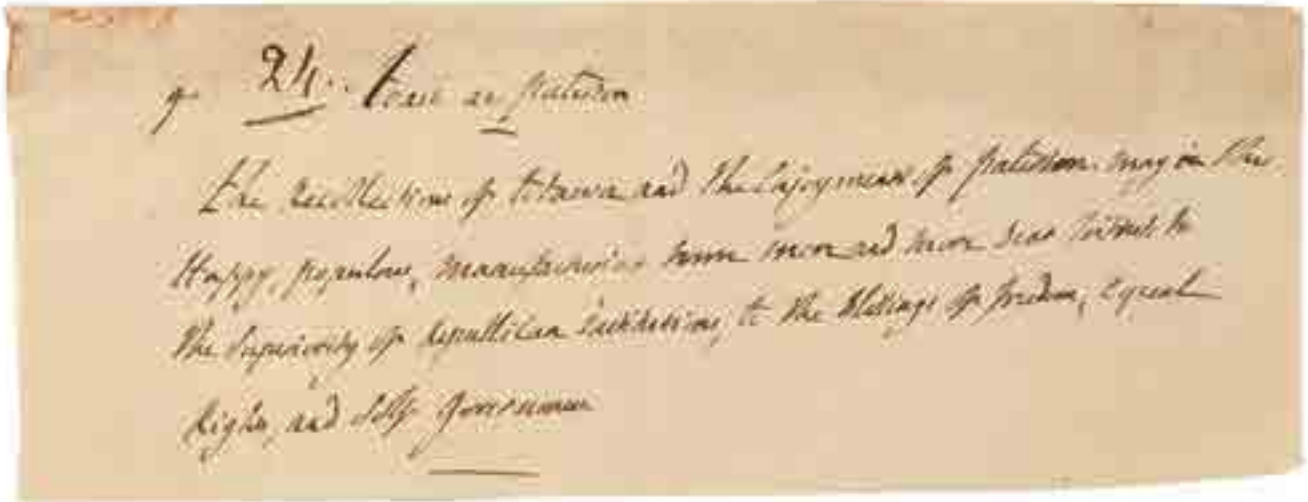 24. Toast at Paterson
The Recollections of Totawa and the Enjoyments of Paterson. may in this
Happy, populous, manufacturing town more and more bear witness to
the Superiority of Republican Institutions, to the Blessings of freedom, Equal
Rights, and Self Government